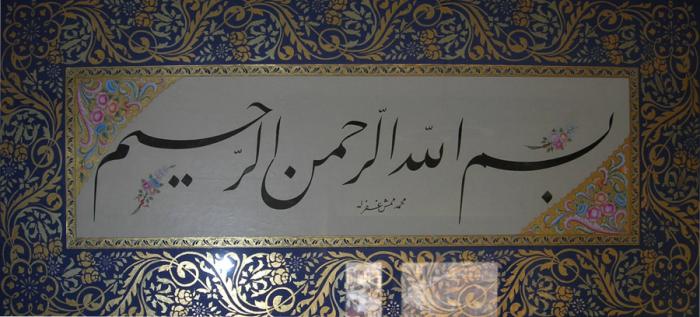 بسم الله الرحمن الرحیم
محمد مشعشعی غفرله